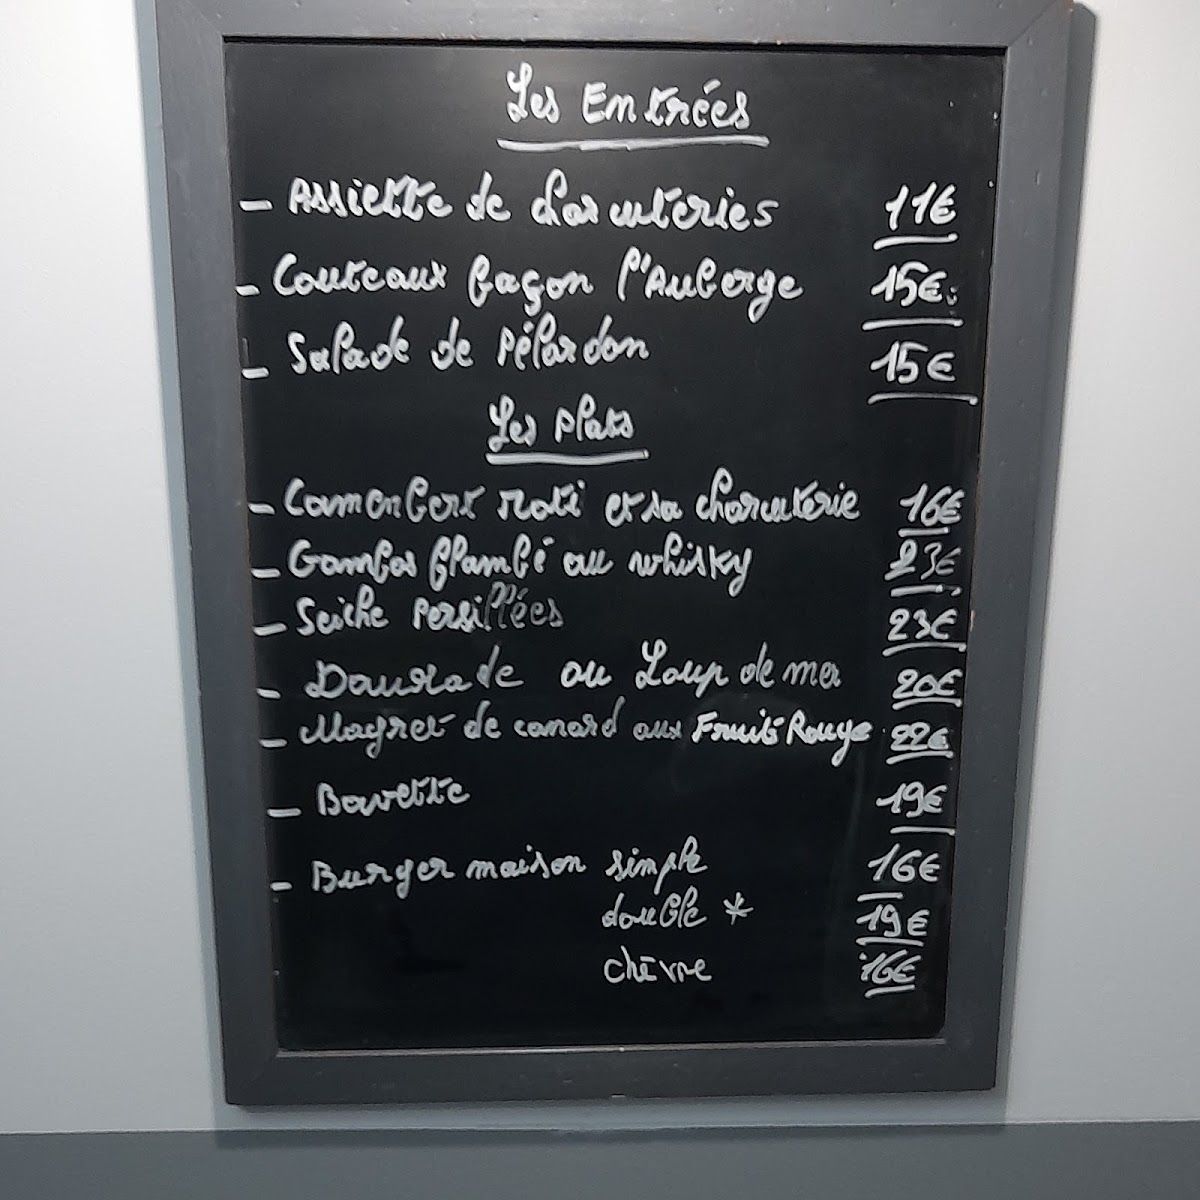 Les Entrées
- Assiette de charcuteries 11€
- Couteaux façon l'Auberge 15€
- Salade de Pélardon 15€
Les Plats
- Camembert roti et sa charcuterie 16€
- Gambas flambé au whisky 23€
- Seiche Persillées 23€
- Daurade ou Loup de mer 20€
- Magret de canard aux Fruits Rouge 22€
- Bavette 19€
- Burger maison simple 16€
double * 19€
chèvre 16€